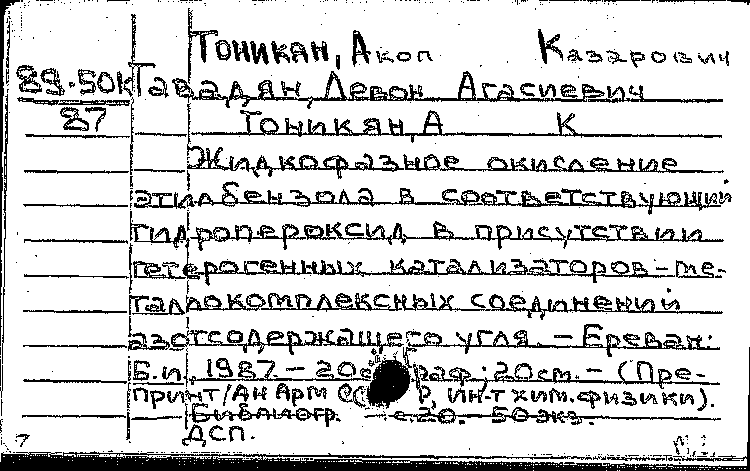 Тоникан, Акоп Казарович
89-50К Гавадян, Левон Агасиевич
87 Тоникян, А К
Жидкофазное окисление
этилбензола в соответствующий
гидропероксид в присутствии
гетерогенных катализаторов - ме-
таллокомплексных соединений
азотсодержащего угля. - Ереван:
Б.и., 1987. - 20с граф; 20см. - (Пре-
принт/Ан Арм ССР, ин-т хим. физики).
Библиогр. с. 20. - 50 экз.
ДСП.
7